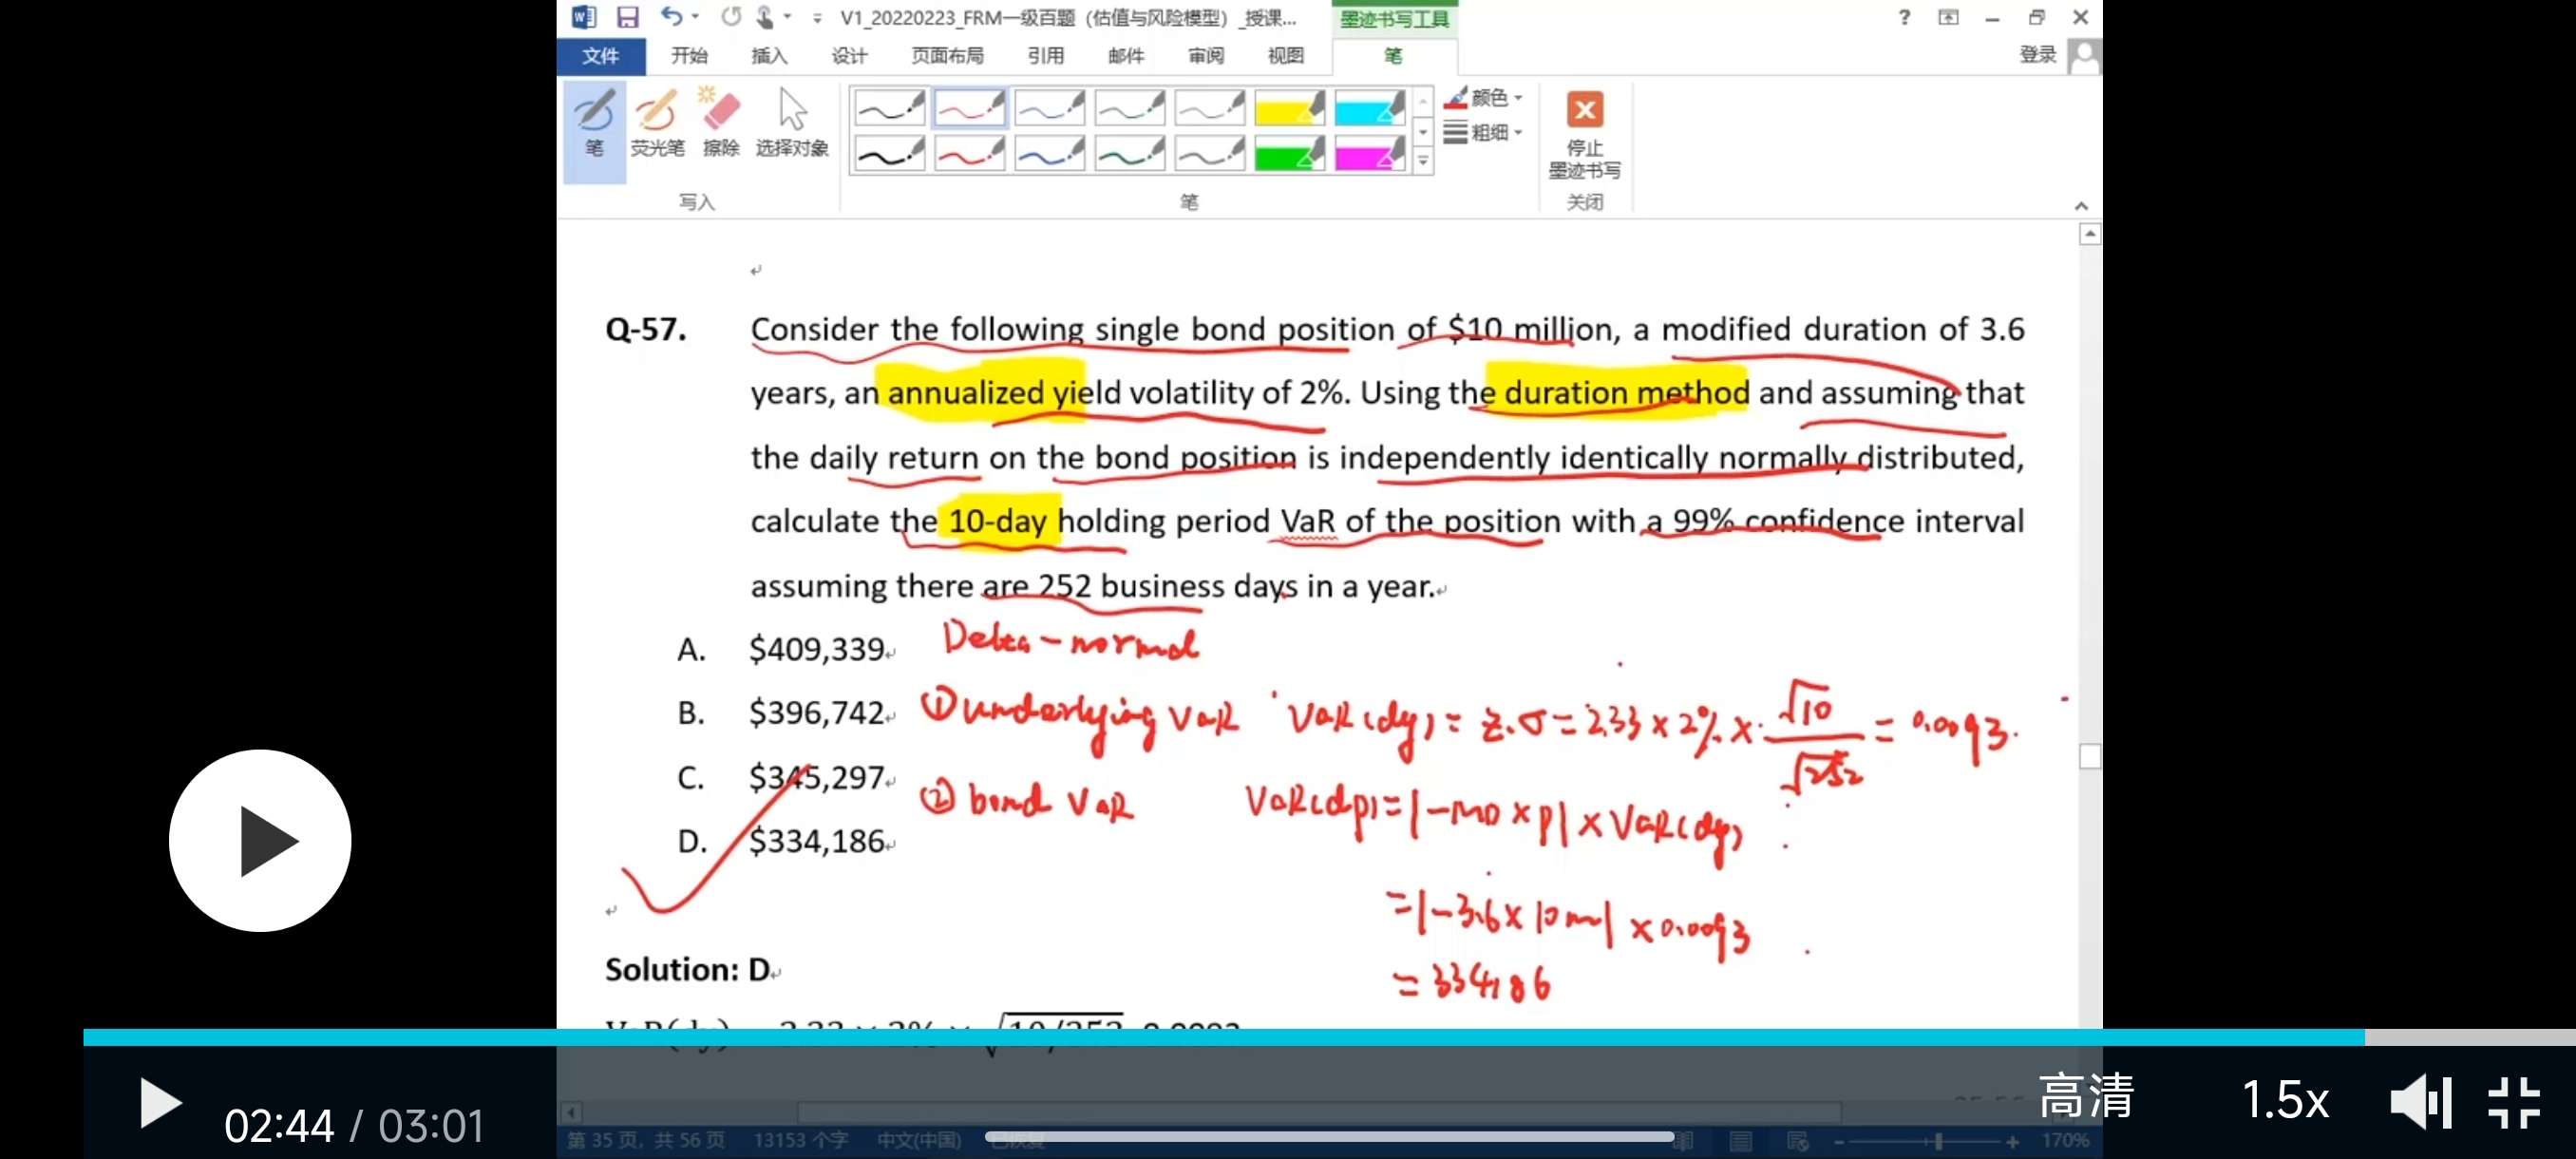 V1_20220223_FRM一级百题（估值与风险模型）_授课...
墨迹书写工具
文件 开始 插入 设计 页面布局 引用 邮件 审阅 视图 笔
登录
笔 荧光笔 擦除 选择对象
颜色
粗细
停止
墨迹书写
写入 笔 关闭
Q-57. Consider the following single bond position of $10 million, a modified duration of 3.6
years, an annualized yield volatility of 2%. Using the duration method and assuming that
the daily return on the bond position is independently identically normally distributed,
calculate the 10-day holding period VaR of the position with a 99% confidence interval
assuming there are 252 business days in a year.
A. $409,339
Delta-normal
B. $396,742
① underlying VaR VaR(dy) = z.σ = 2.33 × 2% × √10 / √252 = 0.0093.
C. $345,297
② bond VaR VaR(dp) = |-MD × P| × VaR(dy)
D. $334,186
= |-3.6 × 10m| × 0.0093
Solution: D
= 334186
02:44 / 03:01
高清 1.5x
第 35 页，共 56 页 13153 个字 中文(中国) 已恢复
170%